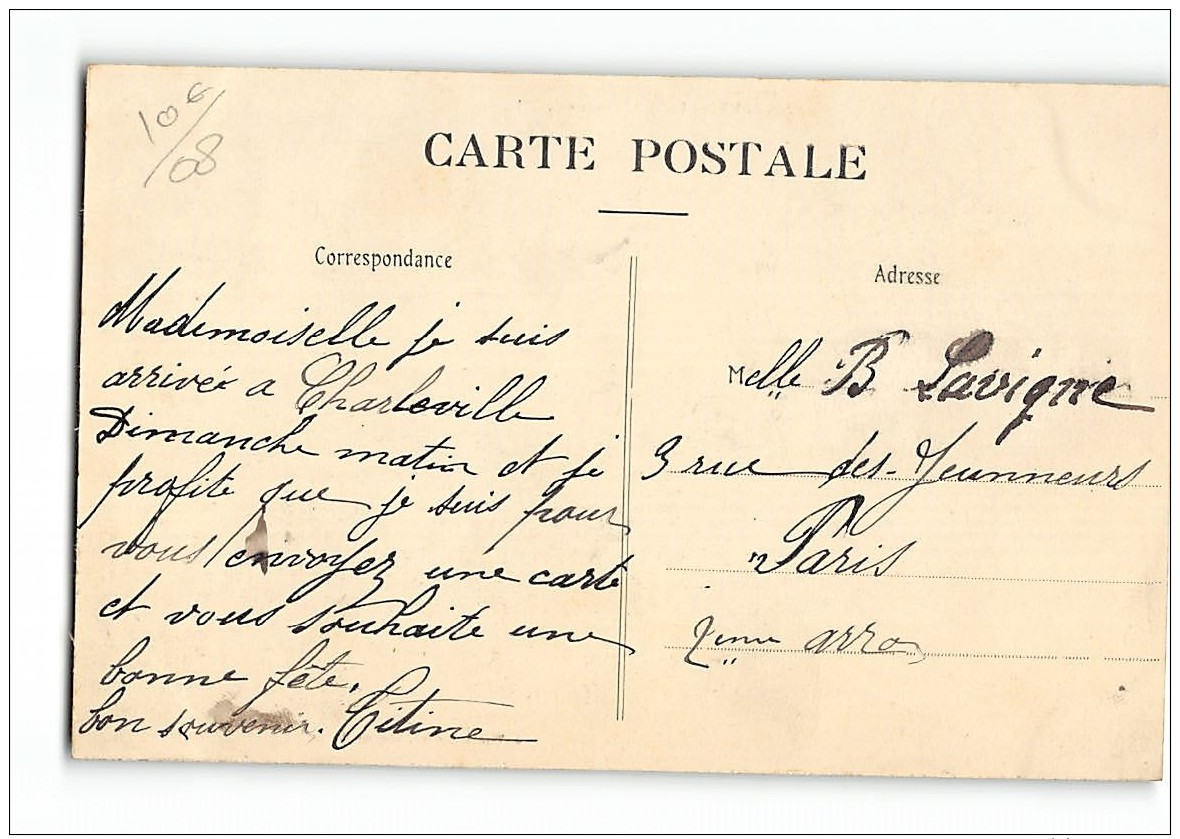 10€/08
CARTE POSTALE
Correspondance
Mademoiselle je suis
arrivée a Charleville
Dimanche matin et je
profite que je suis pour
vous envoyez une carte
et vous souhaite une
bonne fête.
bon souvenir. Titine
Adresse
Melle B Lavigne
3 rue des Jeunneurs
Paris
2eme arro